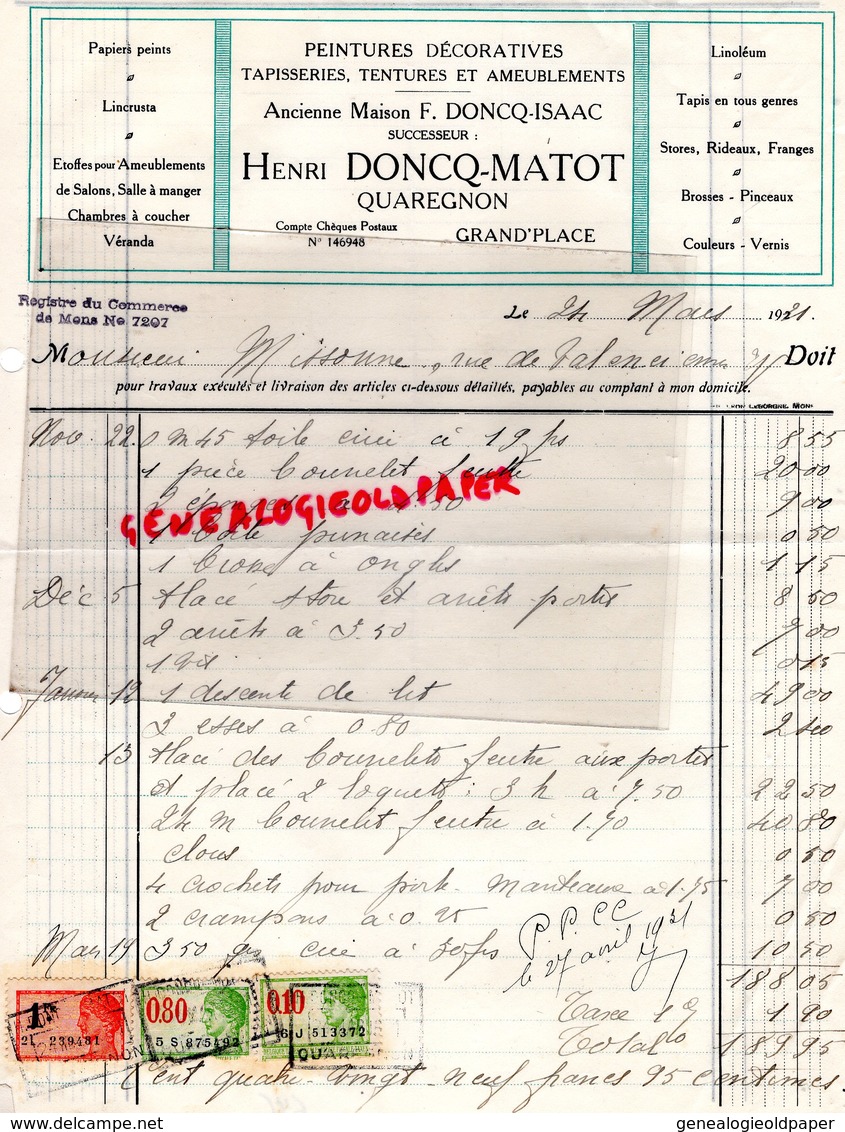 Papiers peints
Lincrusta
Etoffes pour Ameublements
de Salons, Salle à manger
Chambres à coucher
Véranda
PEINTURES DÉCORATIVES
TAPISSERIES, TENTURES ET AMEUBLEMENTS
Ancienne Maison F. DONCQ-ISAAC
SUCCESSEUR :
HENRI DONCQ-MATOT
QUAREGNON
Compte Chèques Postaux
N° 146948
GRAND'PLACE
Linoléum
Tapis en tous genres
Stores, Rideaux, Franges
Brosses - Pinceaux
Couleurs - Vernis
Registre du Commerce
de Mons No 7207
Le 24 Mars 1931.
Monsieur Missonne, rue de Valenciennes Doit
pour travaux exécutés et livraison des articles ci-dessous détaillés, payables au comptant à mon domicile.
LEBORGNE, MONS
Nov. 22. 0 m 45 toile cirée à 19 frs 8 55
1 pièce bourrelet feutre 20 00
2 à 4.50 9 00
1 boîte punaises 0 50
1 brosse à ongles 1 15
Déc 5 placé store et arrêts portes 8 50
2 arrêts à 3.50 7 00
1 vis 0 15
Janvier 12 1 descente de lit 49 00
3 esses à 0.80 2 40
13 placé des bourrelets feutre aux portes
et placé 2 loquets : 3 h à 7.50 22 50
24 m bourrelet feutre à 1.70 40 80
clous 0 50
4 crochets pour porte-manteaux à 1.75 7 00
2 crampons à 0.25 0 50
Mars 19 350 grs cire à 30 frs 10 50
P.P. CC
le 27 avril 1931
188 05
Taxe 1 % 1 90
Total 189 95
Cent quatre-vingt-neuf francs 95 centimes.
GENEALOGIEOLDPAPER
1 Fr
239481
0.80
5 S 875492
0.10
6 J 513372
genealogieoldpaper